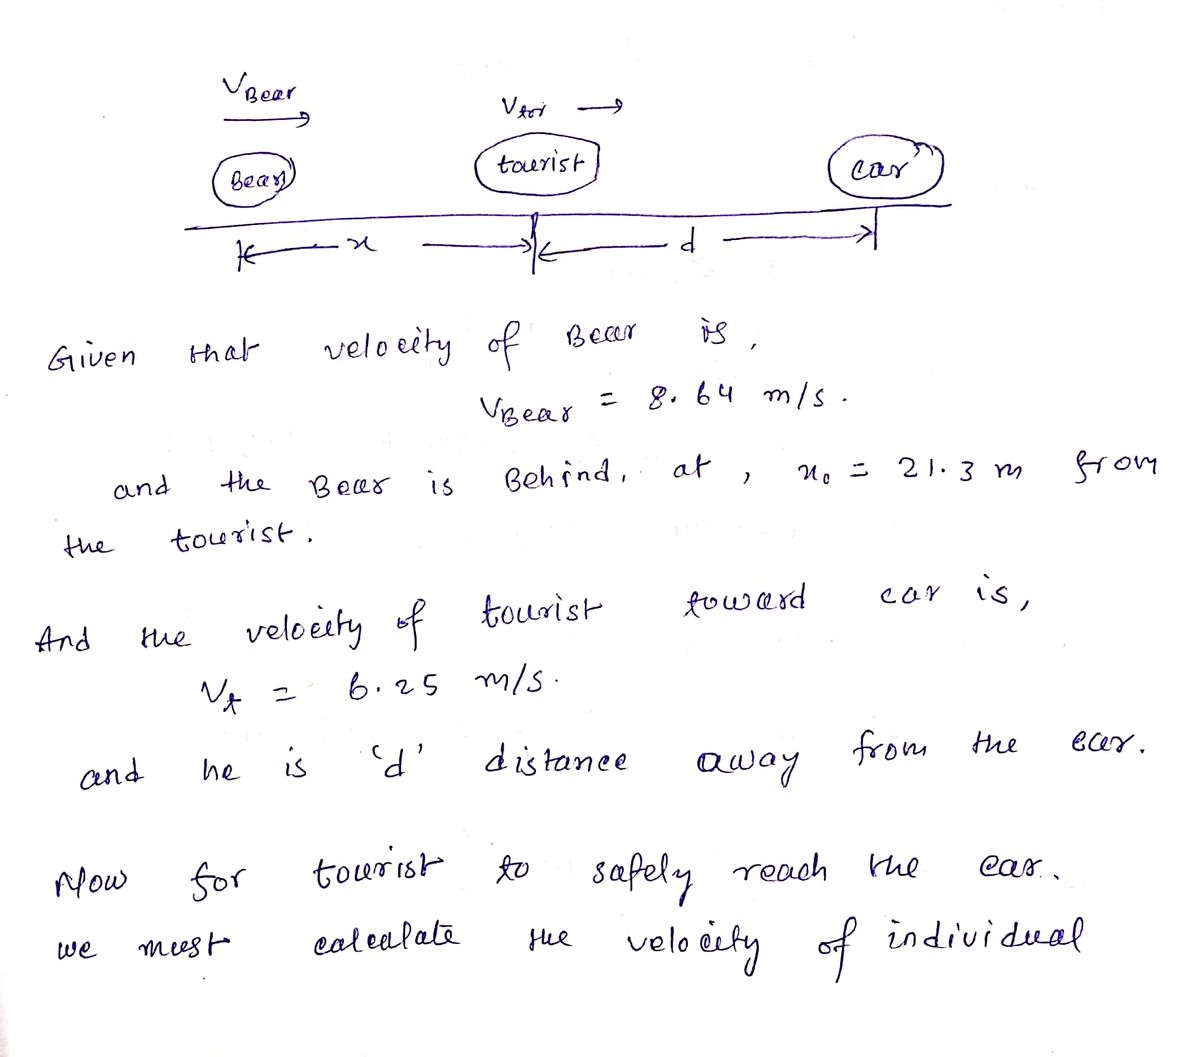 VBear
Vtoi
Bear
tourist
car
x
d
Given that velocity of Bear is,
VBear = 8.64 m/s.
and the Bear is Behind, at, x0 = 21.3 m from
the tourist.
And the velocity of tourist toward car is,
Vt = 6.25 m/s.
and he is 'd' distance away from the car.
Now for tourist to safely reach the car.
we must calculate the velocity of individual